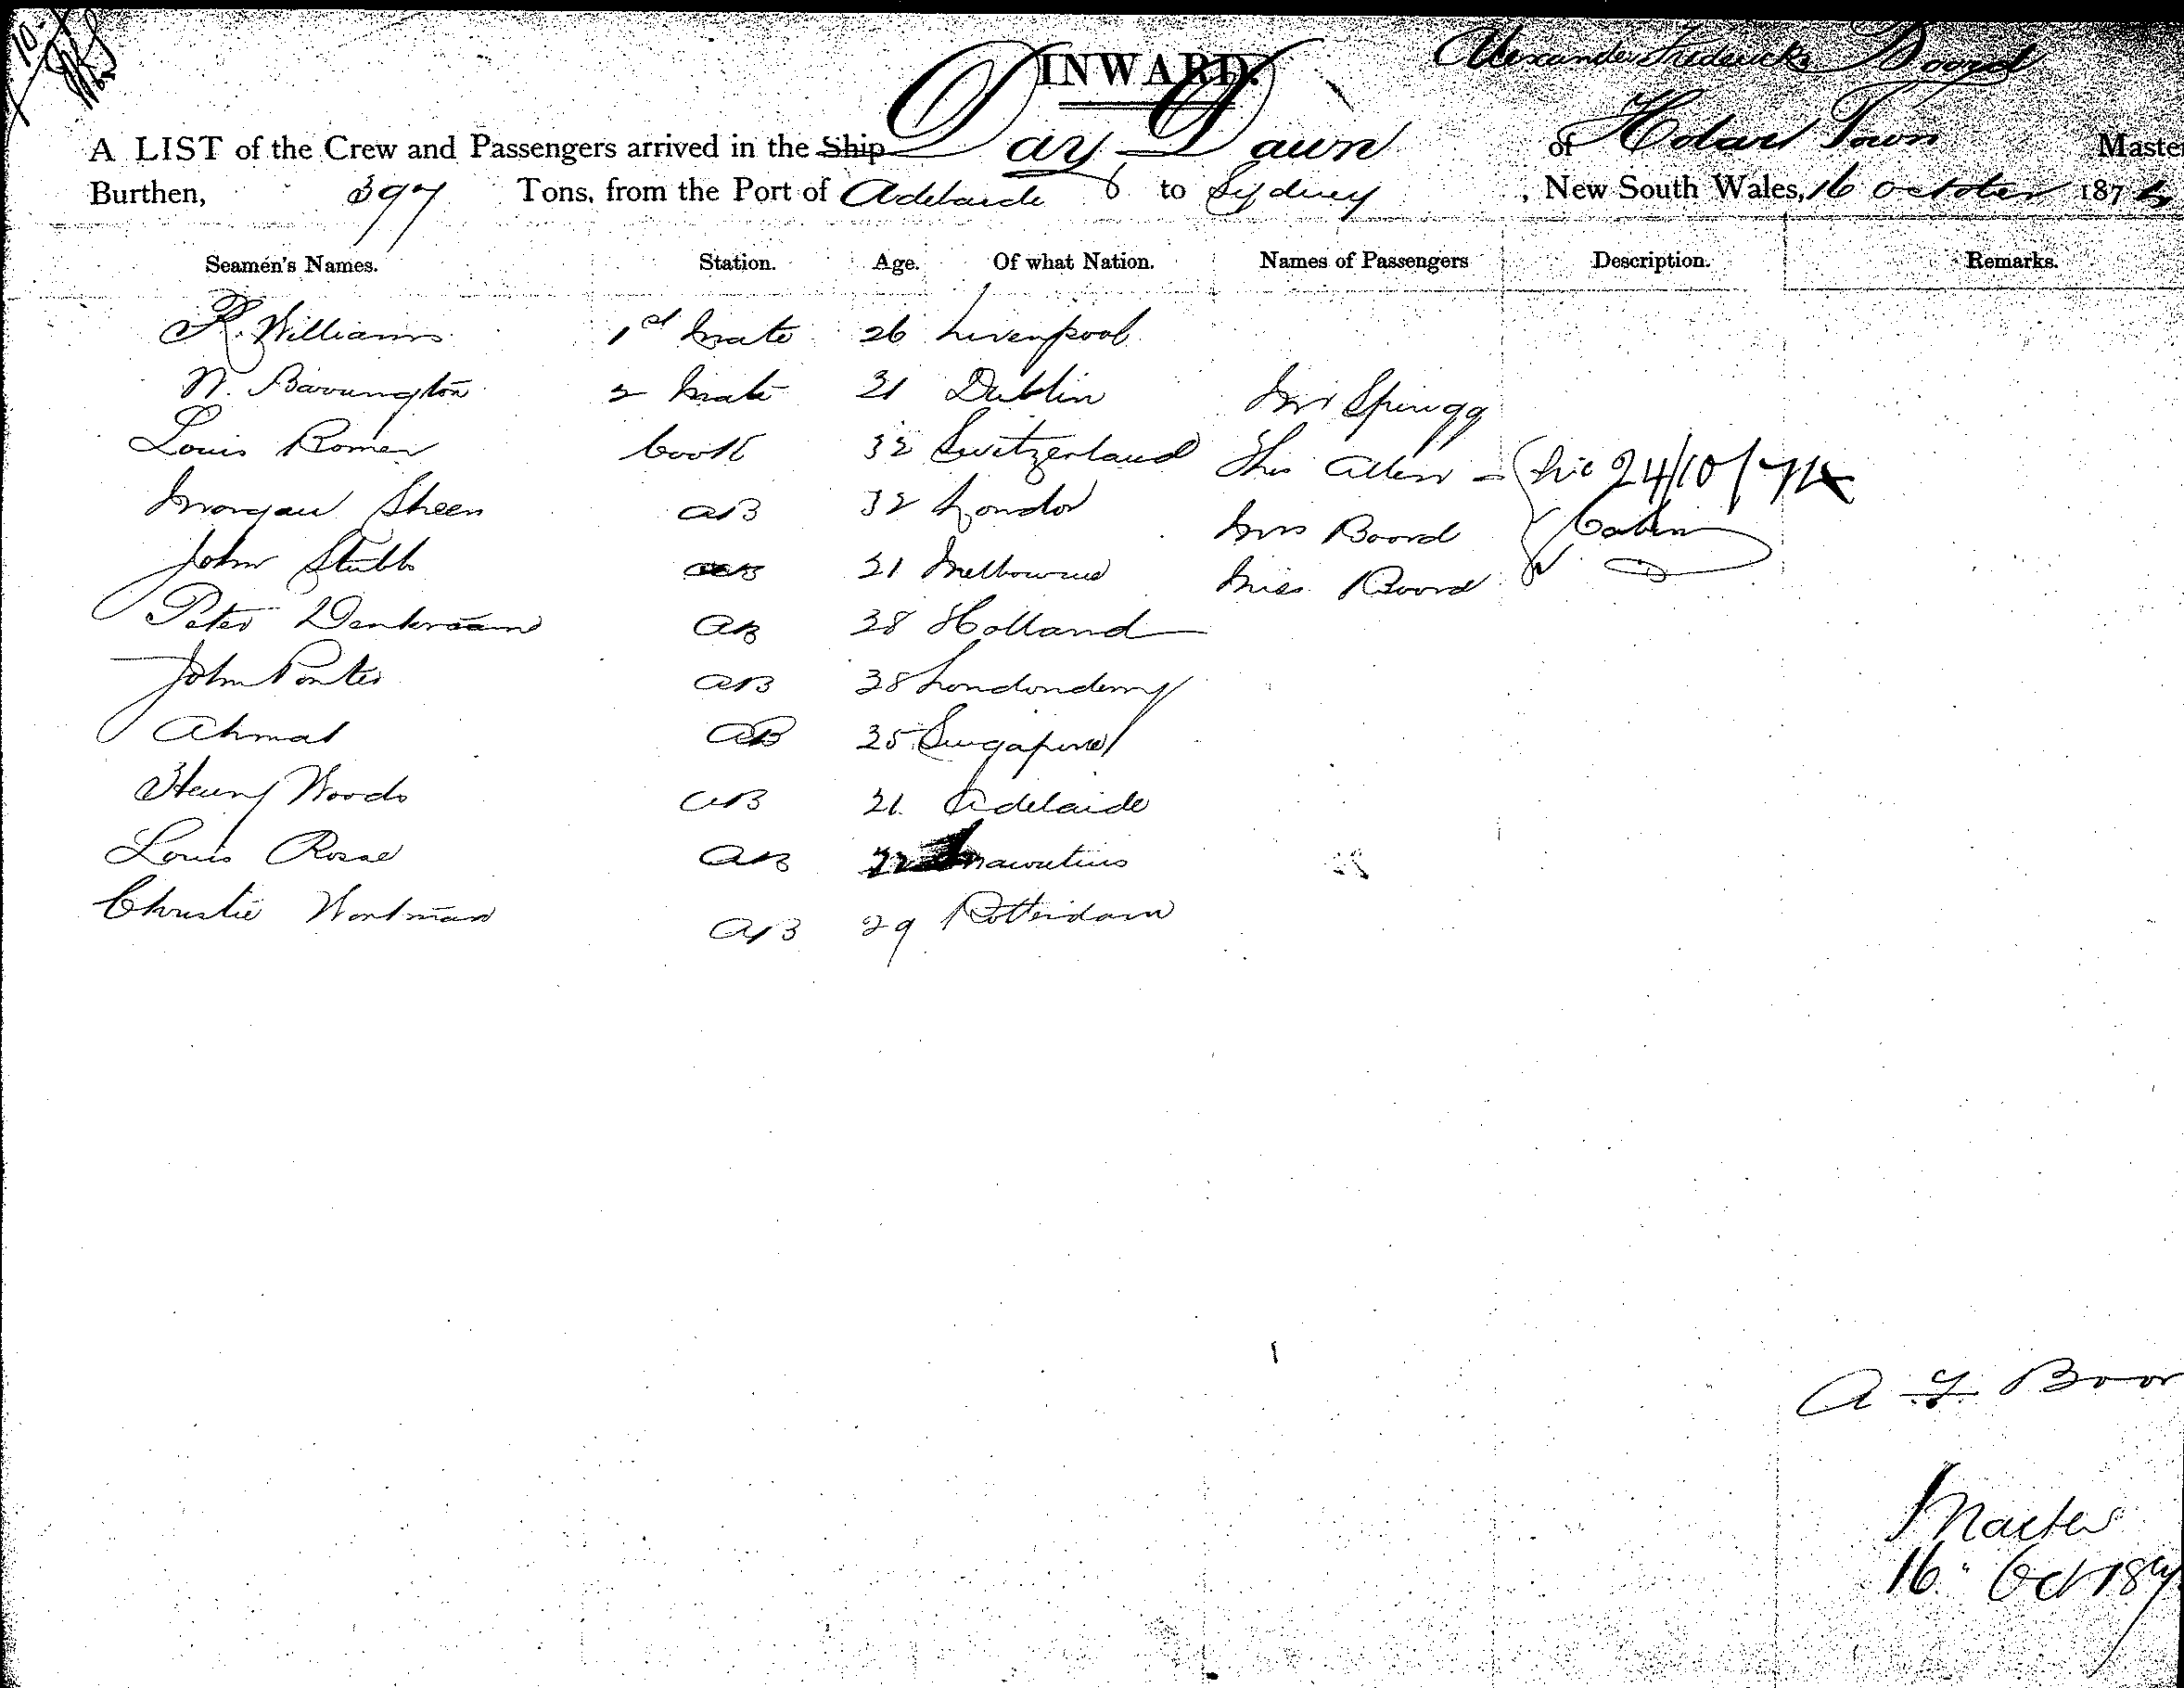 INWARD.
Alexander Frederick Boord
A LIST of the Crew and Passengers arrived in the Ship Day Dawn of Hobart Town Master
Burthen, 397 Tons, from the Port of Adelaide to Sydney, New South Wales, 16 October 1874
Seamen's Names. Station. Age. Of what Nation. Names of Passengers Description. Remarks.
R. Williams 1st Mate 26 Liverpool
N. Barrington 2 Mate 31 Dublin Mr Sprigg
Louis Romer Cook 32 Switzerland Ths Allen 24/10/74
Morgan Sheen AB 32 London Mrs Boord Cabin
John Stubb AB 21 Melbourne Miss Boord
Peter AB 38 Holland
John Porter AB 38 Londonderry
Ahmat AB 35 Singapore
Henry Woods AB 21 Adelaide
Louis Rosse AB 22 Mauritius
Christie Wortman AB 29 Rotterdam
A F Boor
Master
16 Oct 187